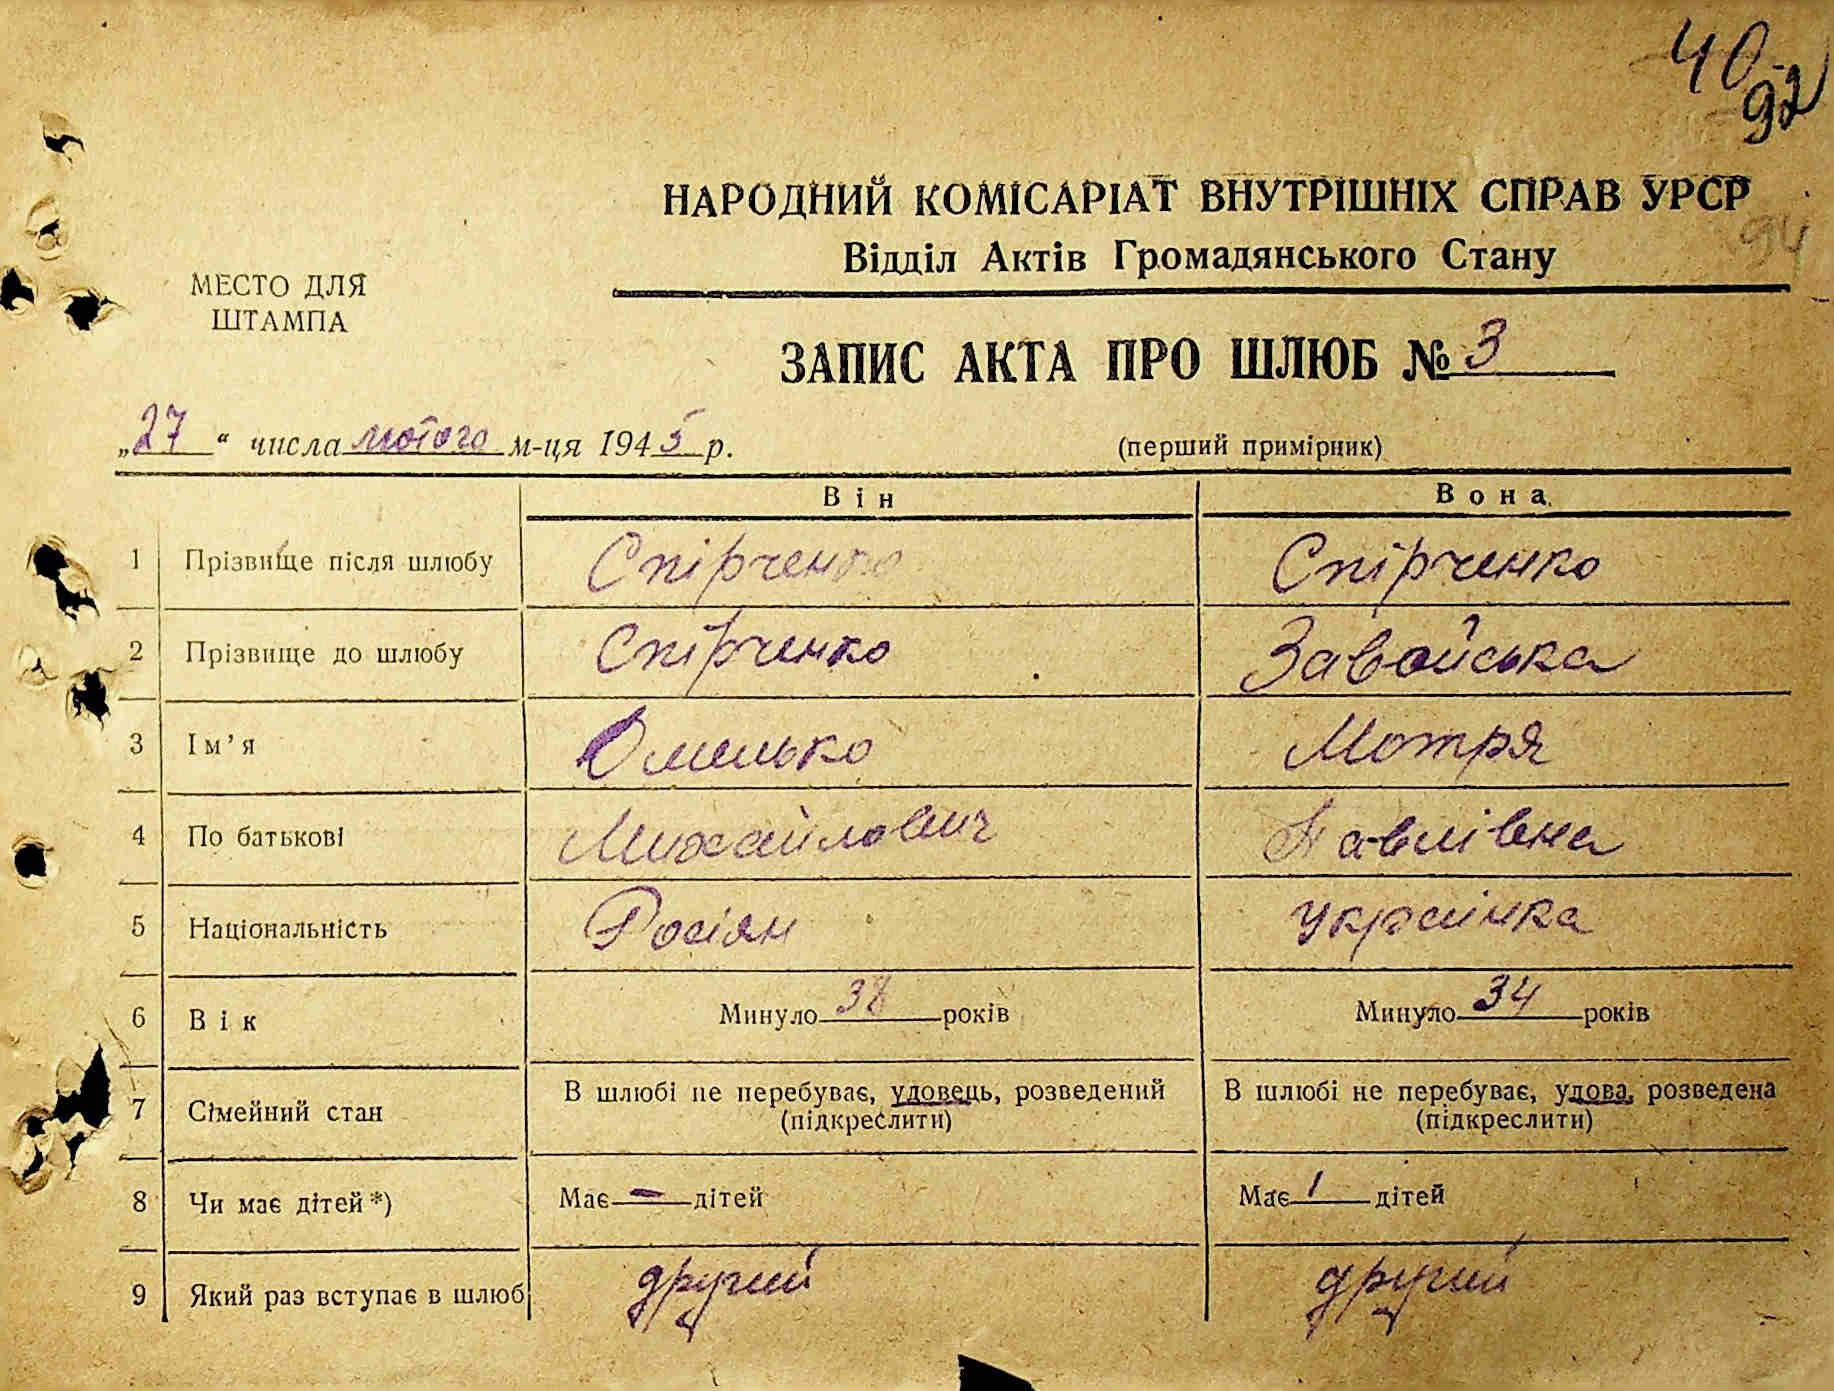 40
92
НАРОДНИЙ КОМІСАРІАТ ВНУТРІШНІХ СПРАВ УРСР
94
Відділ Актів Громадянського Стану
МЕСТО ДЛЯ
ШТАМПА
ЗАПИС АКТА ПРО ШЛЮБ № 3
„27“ числа лютого м-ця 1945 р.
(перший примірник)
Він Вона
1 Прізвище після шлюбу Спірченко Спірченко
2 Прізвище до шлюбу Спірченко Завойська
3 Ім’я Омелько Мотря
4 По батькові Михайлович Павлівна
5 Національність Росіян Українка
6 Вік Минуло 38 років Минуло 34 років
7 Сімейний стан В шлюбі не перебуває, удовець, розведений В шлюбі не перебуває, удова, розведена
(підкреслити) (підкреслити)
8 Чи має дітей *) Має — дітей Має 1 дітей
9 Який раз вступає в шлюб другий другий